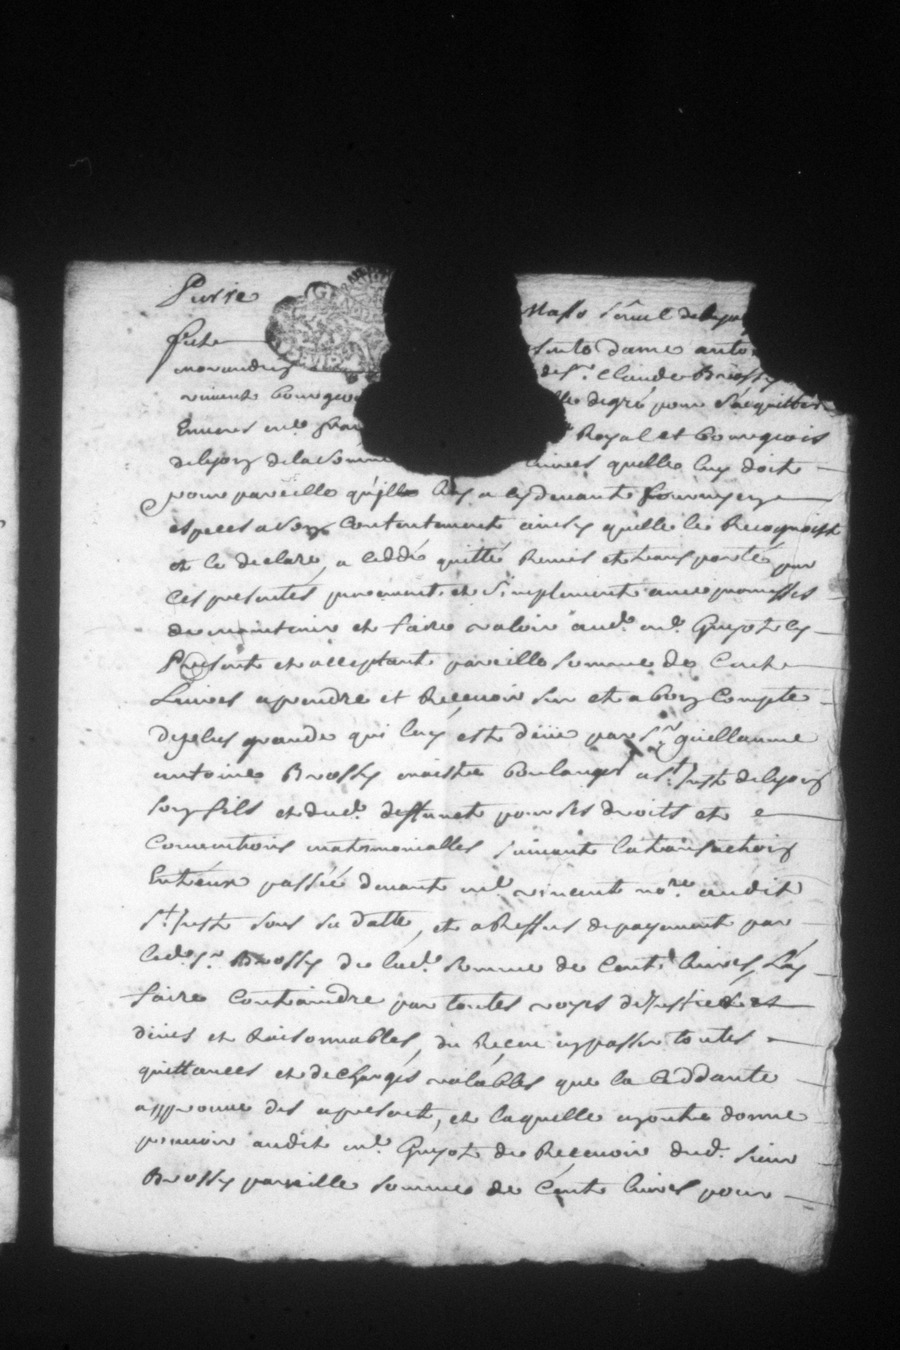 Pierre
fut
Sento Dame anto
de Sr. Claude Brossy
vivent bourgeois de gré pour s'acquitter
Envers me. Royal et bourgeois
de lyon de la somme Livres quelle luy doit
pour pareille qu'il luy a cydevant fourny en
especes a son contentement ainsy quelle le Recognoist
et le declare, a ceddé quitté Remis et transporté par
ces presentes purement et simplement avec promesses
de maintenir et faire valoir aud. me. Guyot cy
Present et acceptant pareille somme de Cent
Livres aprendre et Recevoir sur et a bon Compte
de plus grande qui luy est düe par Sr. guillaume
antoine Brossy maistre boulanger a St. Just de lyon
son fils et dud. deffunct pour ses droits et
Conventions matrimonialles suivant la transaction
Entreux passée devant me. vincent nore. audit
St. Just sous sa datte, et a deffaut de payement par
led. Sr. Brossy de lad. somme de Cent Livres, L'en
faire Contraindre par toutes voyes de justice et
dües et Raisonnables, du Receu en passer toutes
quittances et decharges valables que la Ceddante
approuve des apresent, et laquelle ajoute donne
pouvoir audit me. Guyot de Recevoir dud. sieur
Brossy pareille somme de Cent livres pour